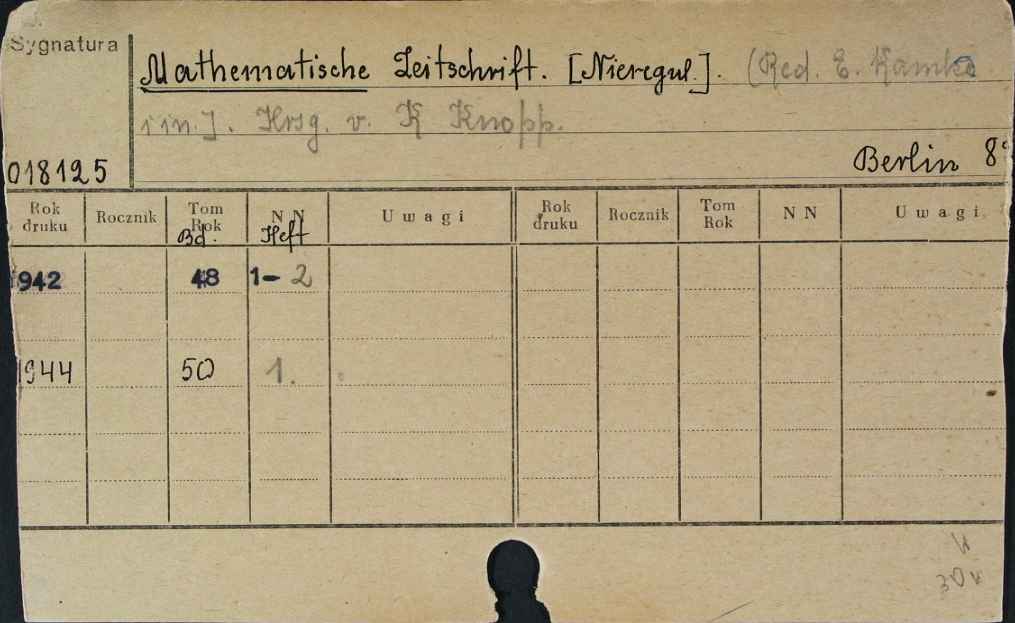 Sygnatura
Mathematische Zeitschrift. [Nieregul.]. (Red. E. Kamke
i in.]. Hrsg. v. K Knopp.
018125
Berlin 8°
Rok druku Rocznik Tom Rok Bd. N N Heft Uwagi Rok druku Rocznik Tom Rok N N Uwagi
1942 48 1- 2
1944 50 1.